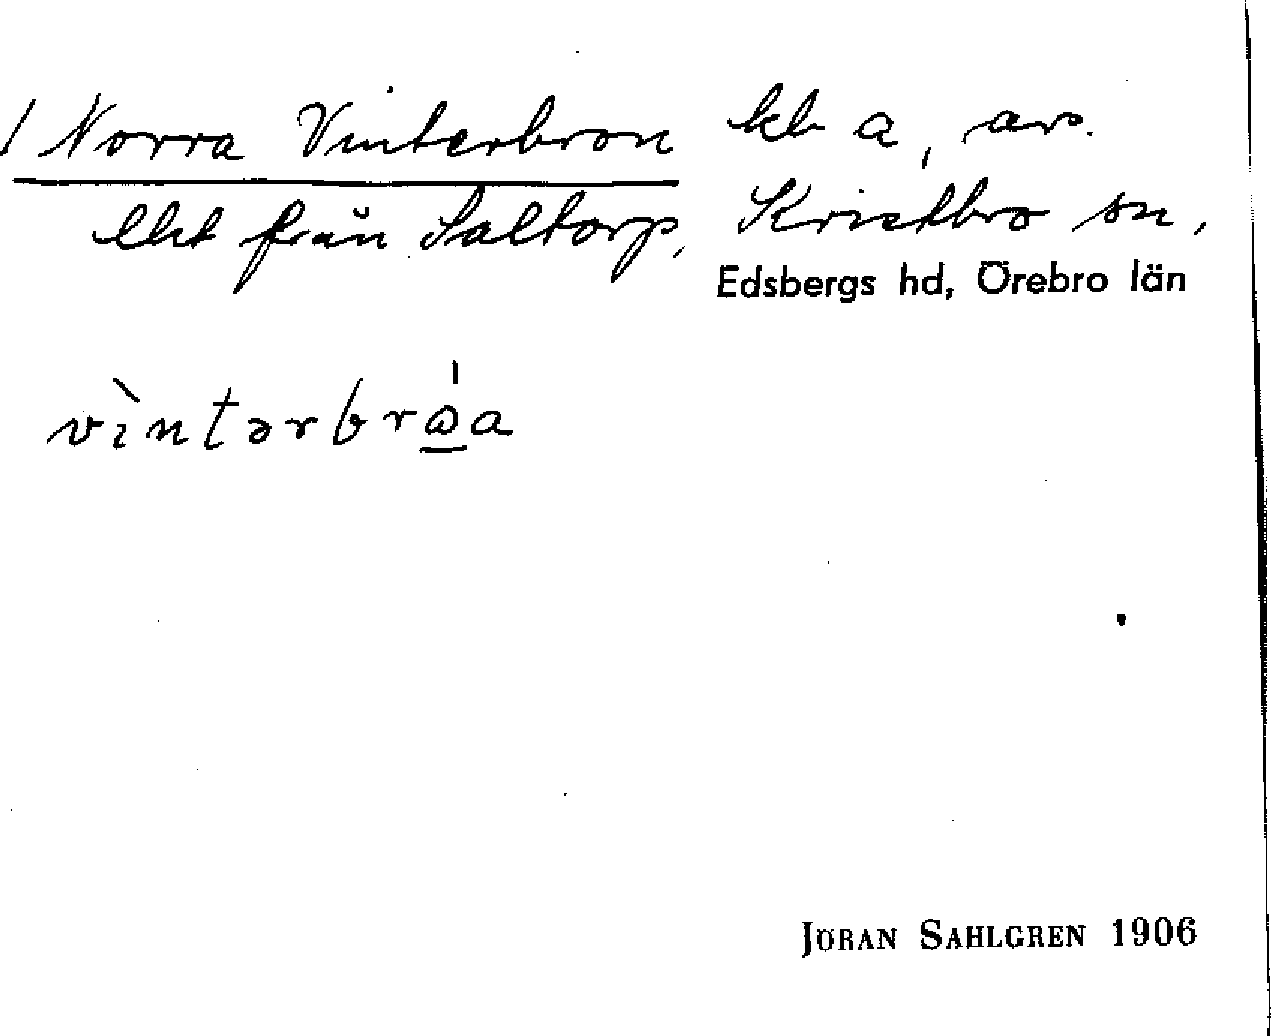 / Norra Vinterbron kb a, avs.
lht från Saltorp, Kvistbro sn,
Edsbergs hd, Örebro län
vìntərbrώ̲a
JÖRAN SAHLGREN 1906